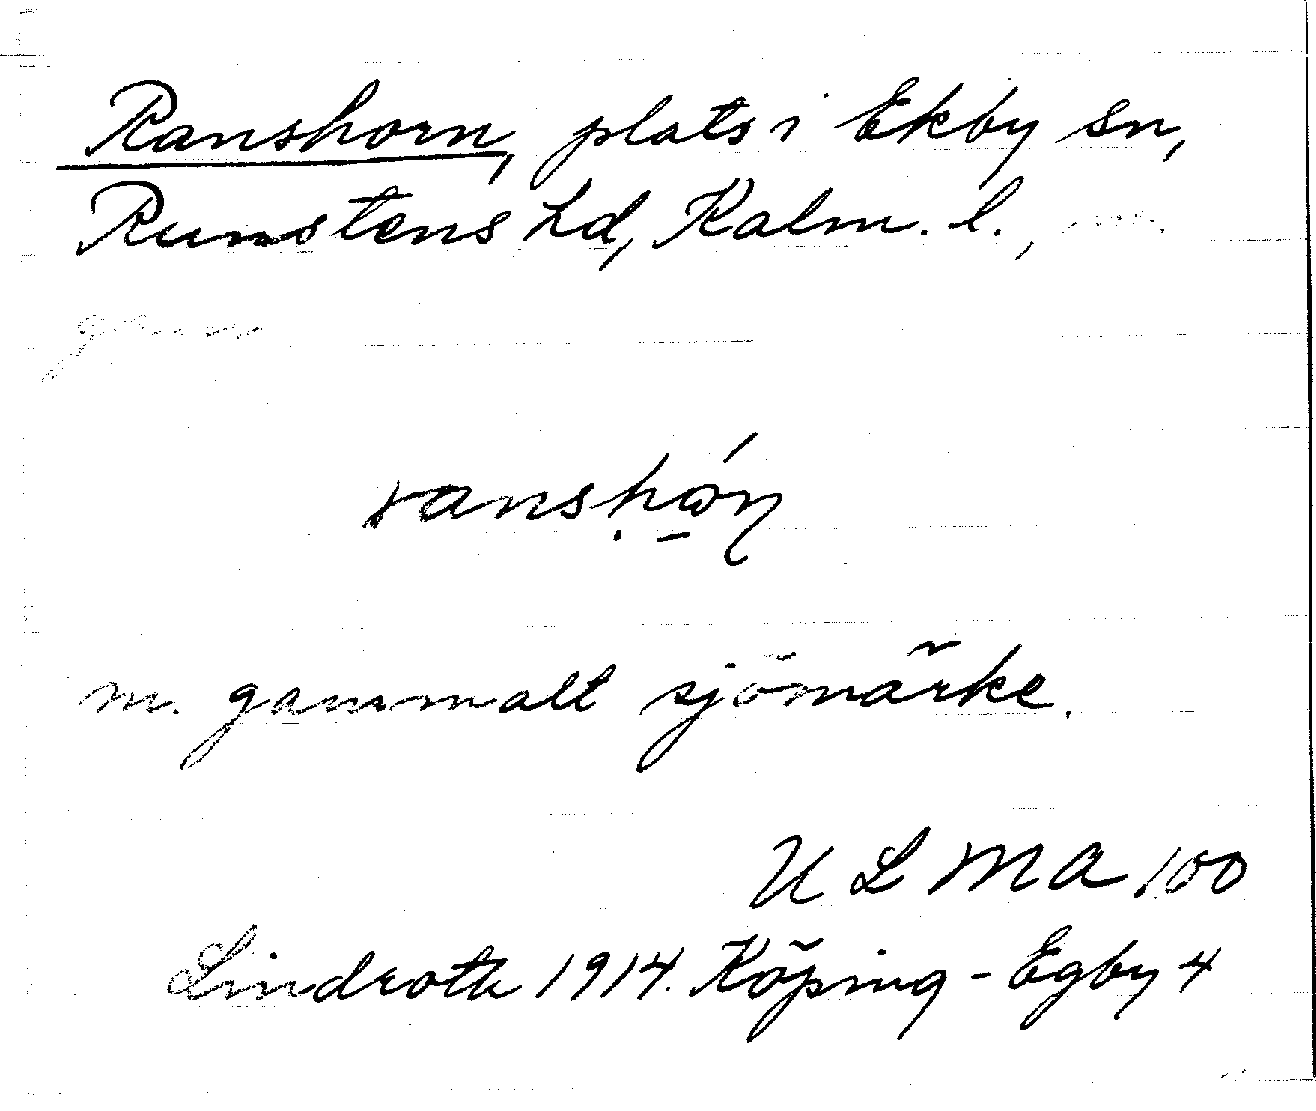 Ranshorn, plats i Ekby sn,
Runstens hd, Kalm. l.,
ranshón
m. gammalt sjömärke.
U L M A 100
Lindroth 1914. Köping - Egby 4